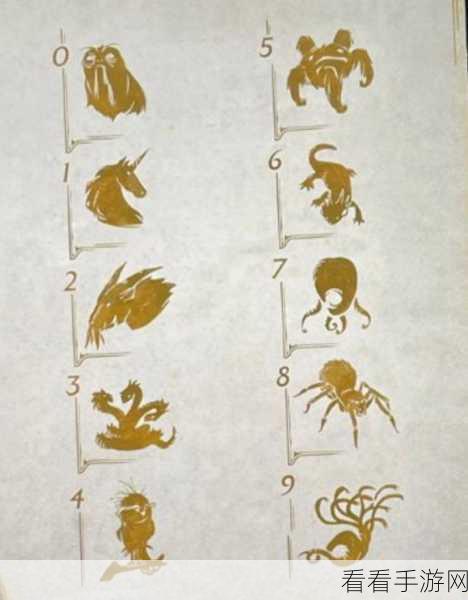 0 5
1 6
2 7
3 8
4 9
看看手游网